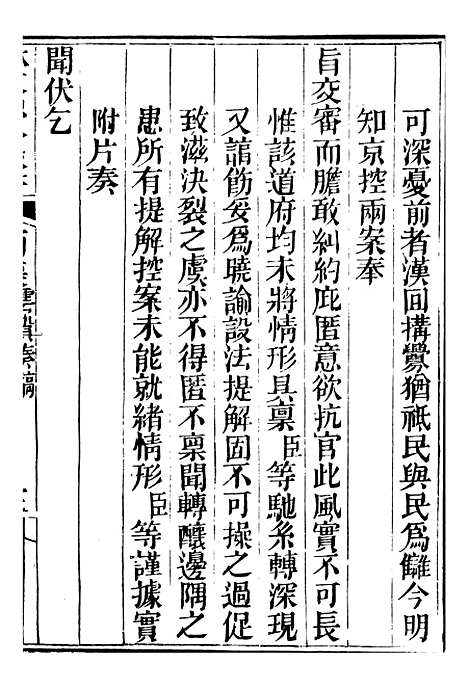 可深憂前者漢回搆釁猶祗民與民爲讎今明
知京控兩案奉
旨交審而膽敢糾約庇匿意欲抗官此風實不可長
惟該道府均未將情形具稟臣等馳系轉深現
又諳飭妥爲曉諭設法提解固不可操之過促
致滋決裂之虞亦不得匿不稟聞轉釀邊隅之
患所有提解控案未能就緒情形臣等謹據實
附片奏
聞伏乞
雲貴奏稿